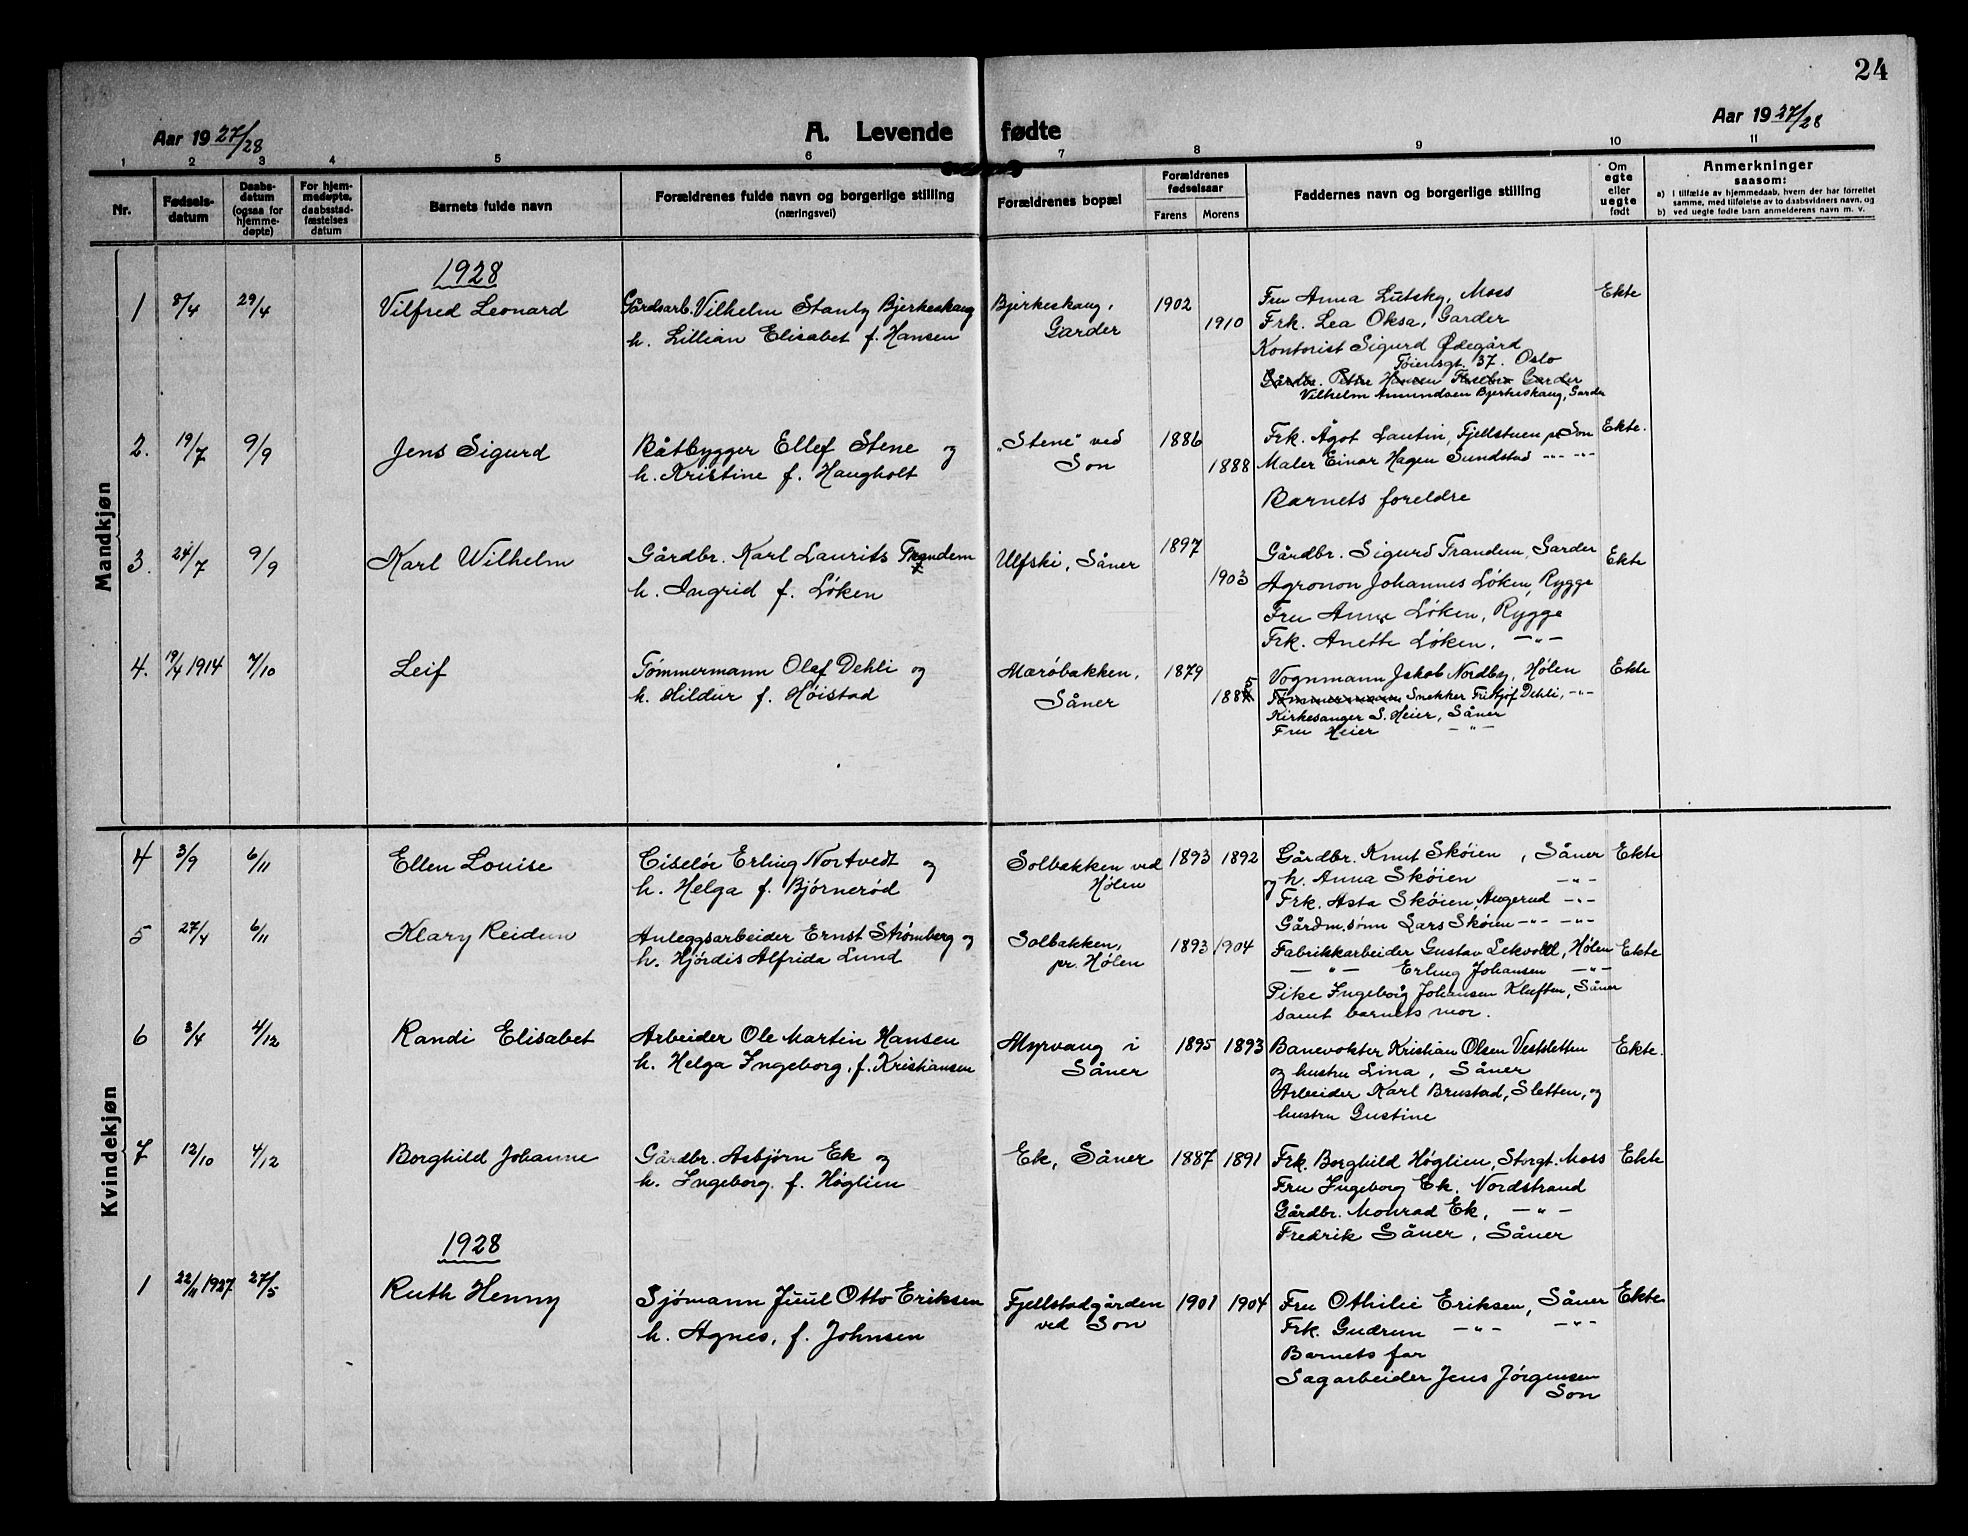 24
Aar 1927/28
A. Levende fødte
Aar 1927/28
1 2 3 4 5 6 7 8 9 10 11
Nr.
Fødselsdatum
Daabsdatum (ogsaa for hjemmedøpte)
For hjemmedøpte, daabsstadfæstelses datum
Barnets fulde navn
Forældrenes fulde navn og borgerlige stilling
(næringsvei)
Forældrenes bopæl
Forældrenes fødselsaar
Farens Morens
Faddernes navn og borgerlige stilling
Om egte eller uegte født
Anmerkninger
saasom:
a) i tilfælde av hjemmedaab, hvem der har forrettet
samme, med tilføielse av to daabsvidners navn, og
b) ved uegte fødte barn anmelderens navn m. v.
Mandkjøn
1928
1 8/4 29/4 Vilfred Leonard Gårdsarb. Vilhelm Stanly Bjerkeskaug Bjerkeskaug, 1902 Fru Anna Lutsky, Moss Ekte
h. Lillian Elisabet f. Hansen Garder 1910 Frk. Lea Oksa, Garder
Kontorist Sigurd Ødegård
Tøiensgt. 37. Oslo
Gårdbr. Petter Hansen Garder
Vilhelm Amundsen Bjerkeskaug, Garder
2. 19/7 9/9 Jens Sigurd Båtbygger Ellef Stene og "Stene" ved 1886 Frk. Ågot Lautin, Fjellstuen pr Son Ekte.
h. Kristine f. Haugholt Son 1888 Maler Einar Hagen Sundstad -"- -"-
Barnets foreldre
3. 24/7 9/9 Karl Wilhelm Gårdbr. Karl Laurits Trandem Ulfski, Såner 1897 Gårdbr. Sigurd Trandem, Garder Ekte
h. Ingrid f. Løken 1903 Agronon Johannes Løken, Rygge
Fru Anne Løken, Rygge
Frk. Anette Løken, -"-
4. 19/4 1914 7/10 Leif Tømmermann Olaf Dehli og Mærøbakken, 1879 Vognmann Jakob Nordby, Hølen Ekte
h. Hildur f. Høistad Såner 1885 Tømmermann Snekker Fridtjof Dehli, -"-
Kirkesanger S. Heier, Såner
Fru Heier -"-
Kvindekjøn
4 3/9 6/11 Ellen Louise Ciselør Erling Nortvedt og Solbakken ved 1893 1892 Gårdbr. Knut Skøien, Såner Ekte
h. Helga f. Bjørnerød Hølen og h. Anna Skøien -"-
Frk. Asta Skøien, Augerud -"-
Gårdm.sønn Lars Skøien -"- -"-
5 27/4 6/11 Klary Reidun Anleggsarbeider Ernst Strømberg og Solbakken, 1893 1904 Fabrikkarbeider Gustav Lekvold, Hølen Ekte
h. Hjørdis Alfrida Lund pr. Hølen -"- Erling Johansen -"-
Pike Ingeborg Johansen Kluften, Såner
samt barnets mor.
6 3/4 4/12 Randi Elisabet Arbeider Ole Martin Hansen Myrvang i 1895 1893 Banevokter Kristian Olsen Vestsletten Ekte.
h. Helga Ingeborg, f. Kristiansen Såner og hustru Lina, Såner
Arbeider Karl Brustad, Sletten, og
hustru Gustine
7 12/10 4/12 Borghild Johanne Gårdbr. Asbjørn Ek og Ek, Såner 1887 1891 Frk. Borghild Høglien, Storgt. Moss Ekte
h. Ingeborg. f. Høglien Fru Ingeborg Ek, Nordstrand
Gårdbr. Monrad Ek, -"-
Fredrik Såner, Såner
1928
1 22/11 1927 27/5 Ruth Henny Sjømann Juul Otto Eriksen Fjellstadgården 1901 1904 Fru Othilie Eriksen, Såner Ekte
h. Agnes, f. Johnsen ved Son Frk. Gudrun -"- -"-
Barnets far
Sagarbeider Jens Jørgensen
Son